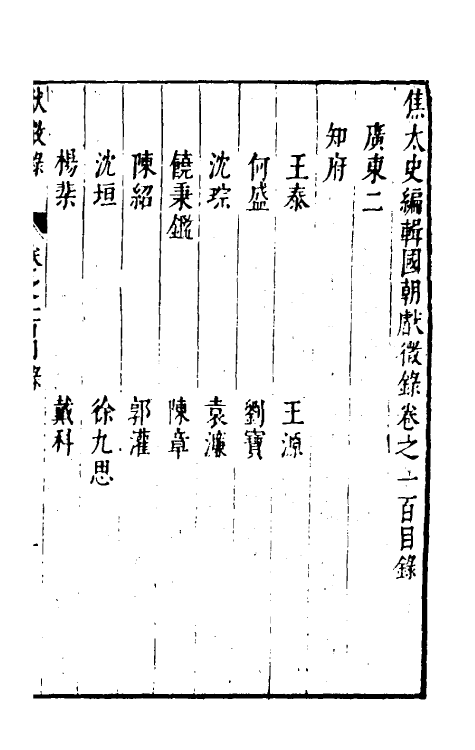 焦太史編輯國朝獻徵錄卷之一百目錄
廣東二
知府
王泰 王源
何盛 劉寶
沈琮 袁濂
饒秉鑑 陳章
陳紹 郭灌
沈垣 徐九思
楊棐 戴科
獻徵錄 卷之一百目錄 一